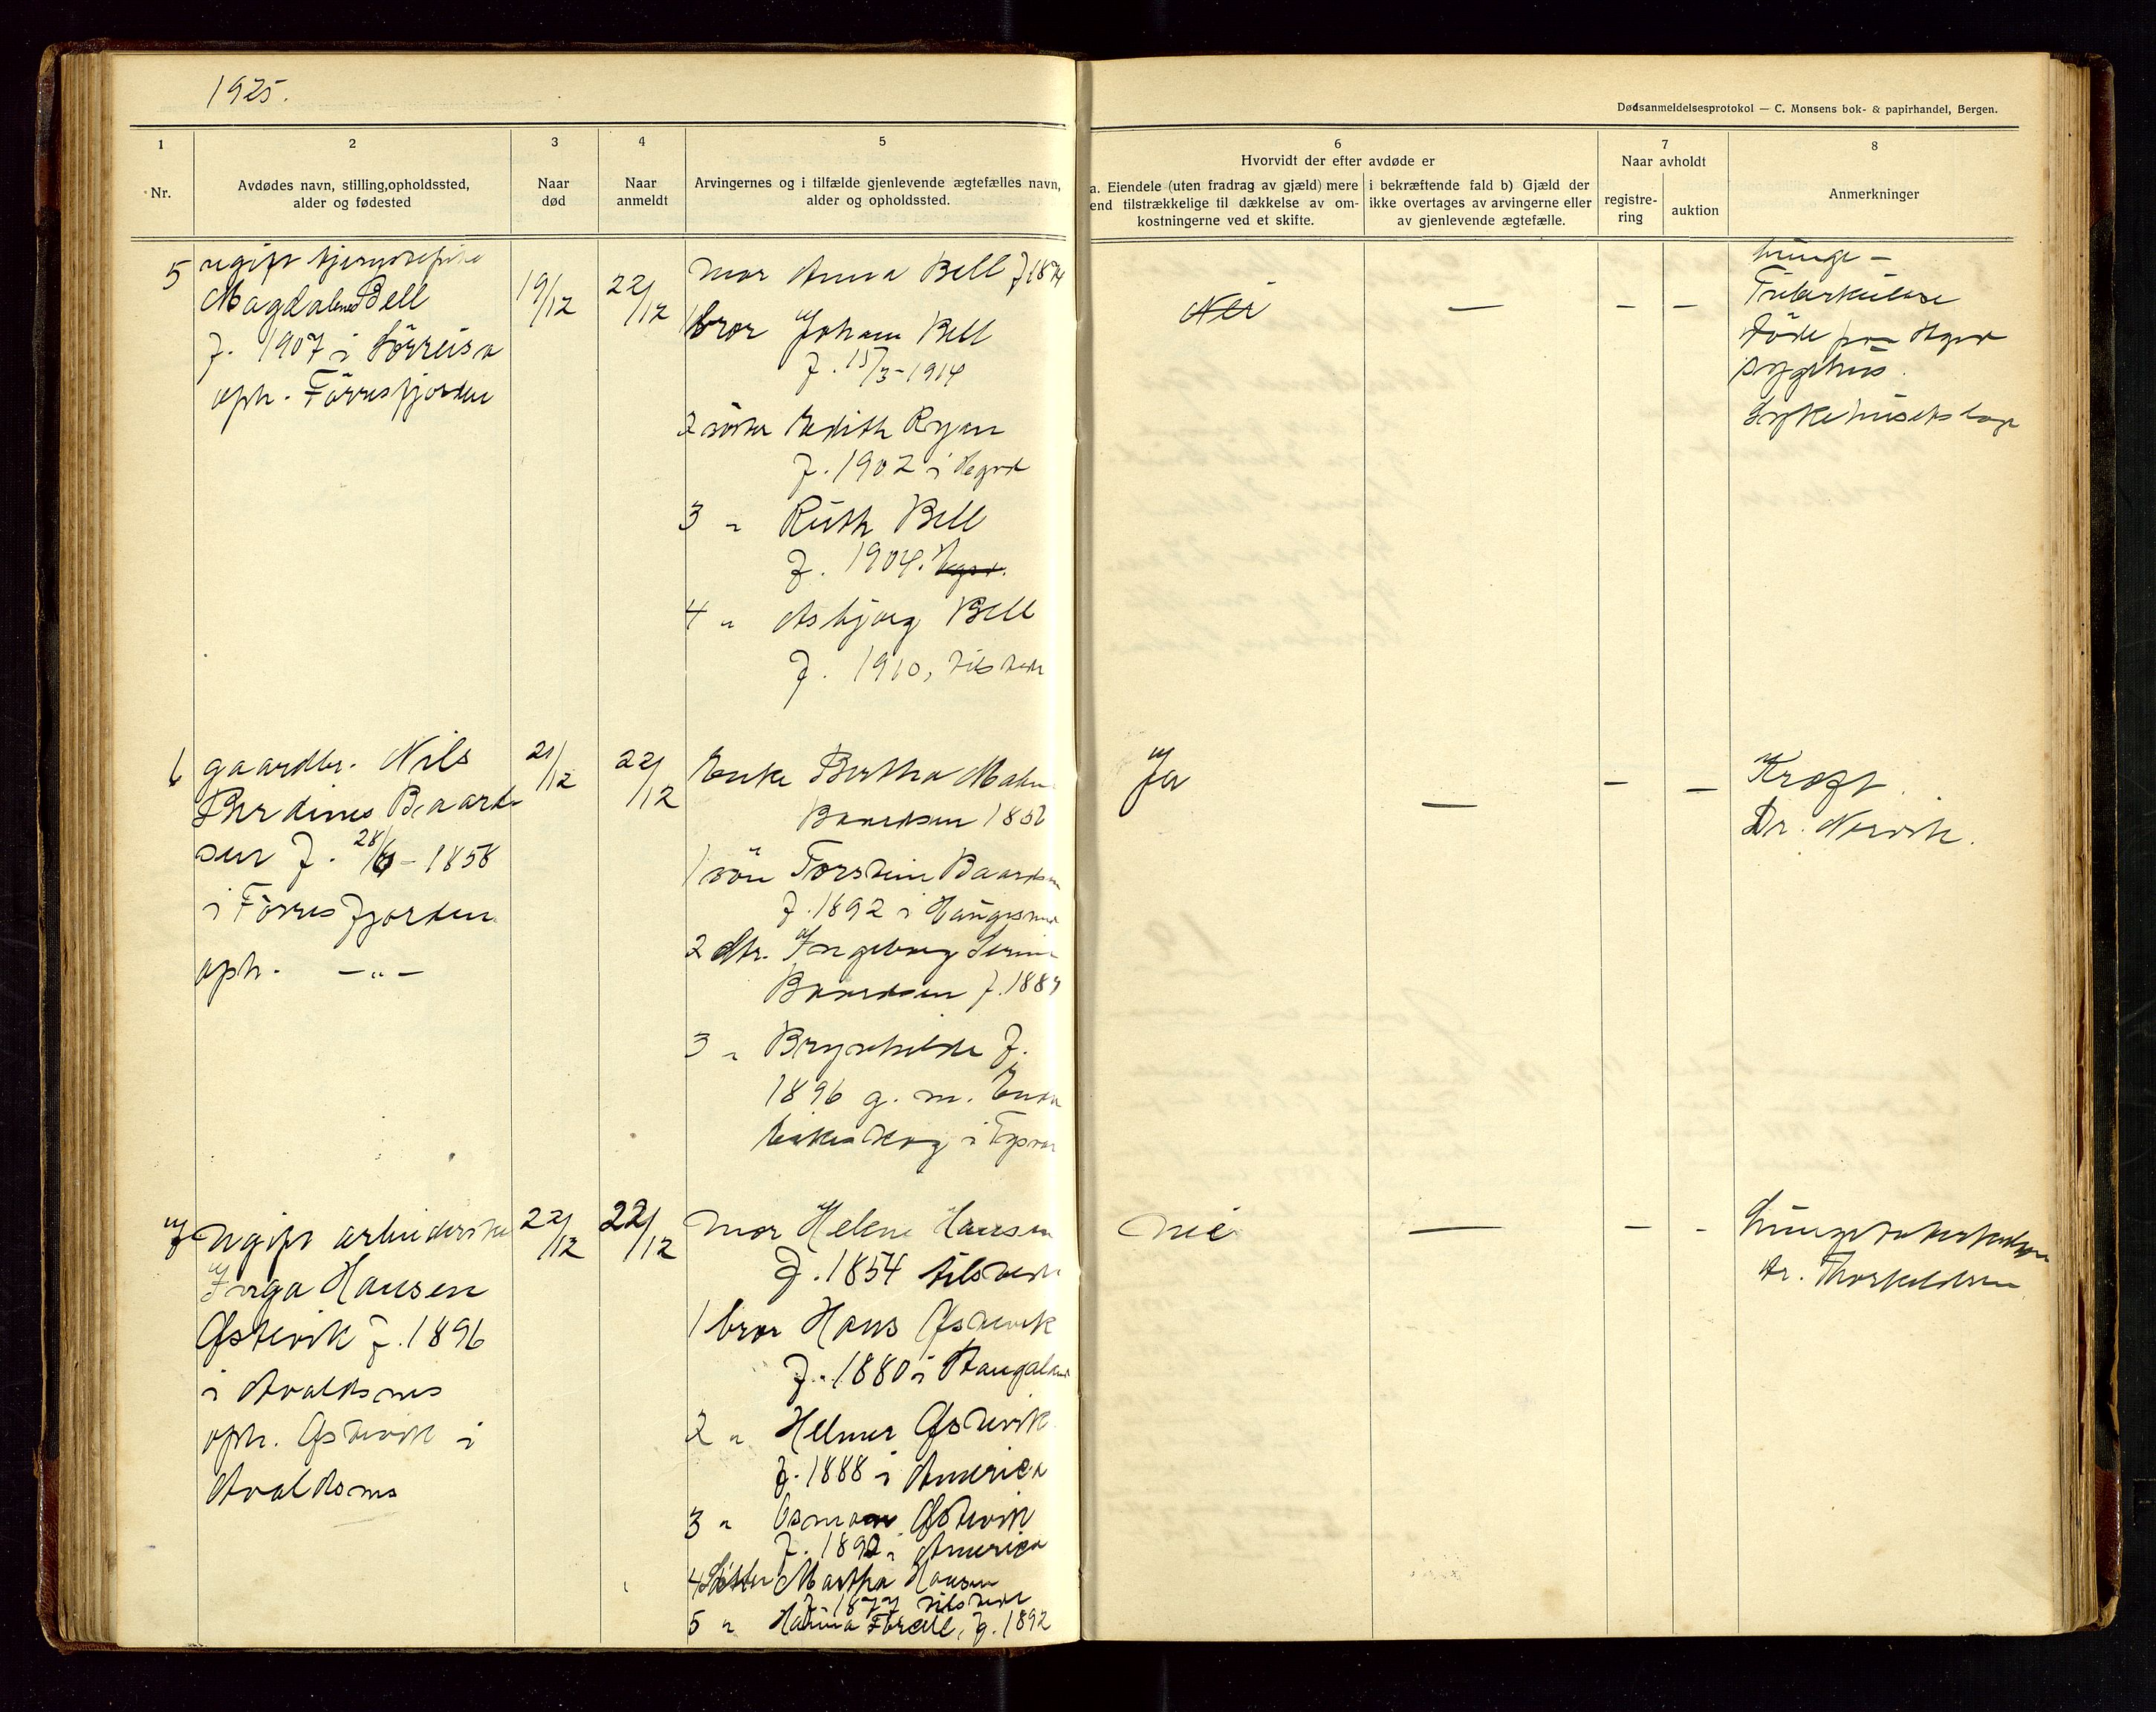 1925.
Dødsanmeldelsesprotokol — C. Monsens bok- & papirhandel, Bergen.
1
Nr.
2
Avdødes navn, stilling, opholdssted,
alder og fødested
3
Naar
død
4
Naar
anmeldt
5
Arvingernes og i tilfælde gjenlevende ægtefælles navn,
alder og opholdssted.
6
Hvorvidt der efter avdøde er
a. Eiendele (uten fradrag av gjæld) mere
end tilstrækkelige til dækkelse av om-
kostningerne ved et skifte.
i bekræftende fald b) Gjæld der
ikke overtages av arvingerne eller
av gjenlevende ægtefælle.
7
Naar avholdt
registre-
ring
auktion
8
Anmerkninger
5
ugift
Magdalene Bell
f. 1907 i Sörreisa
oph. Förresfjorden
19/12
22/12
Mor Anna Bell f 1874
1 bror Johan Bell
f. 15/3-1914
2 söster Edith Ryan
f. 1902 i Hgsd
3 " Ruth Bell
f. 1904.
4 " Asbjørg Bell
f. 1910, tilstede
Nei
—
—
—
Lunge-
Tuberkulose
döde paa Hgsd
sygehus.
Sykehusets læge
6
gaardbr. Nils
Berdines Baard-
sen f. 28/6-1858
i Förresfjorden
oph. —"—
21/12
22/12
Enke Bertha
Baardsen 185
1 sön Torstein Baardsen
f. 1892 i Haugesund
2 dtr. Ingeborg Serine
Baardsen f. 188
3 " Brynhilde f.
1896 g. m.
i Tysvær
Ja
—
—
—
Kræft
Dr.
7
Ugift arbeiderske
Inga Hansen
Østevik f. 1896
i Avaldsnes
oph. Østevik i
Avaldsnes
22/12
22/12
Mor Helene Hansen
f. 1854 tilstede
1 bror Hans Østevik
f. 1880 i Haugaland
2 " Helmer Østevik
f. 1888 i Amerika
3 " Osmon Østevik
f. 1890 i Amerika
4 Söster Martha Hansen
f. 1877 tilstede
5 " f. 1892
nei
—
—
-
Lungetuberkulose
dr. Thorkildsen